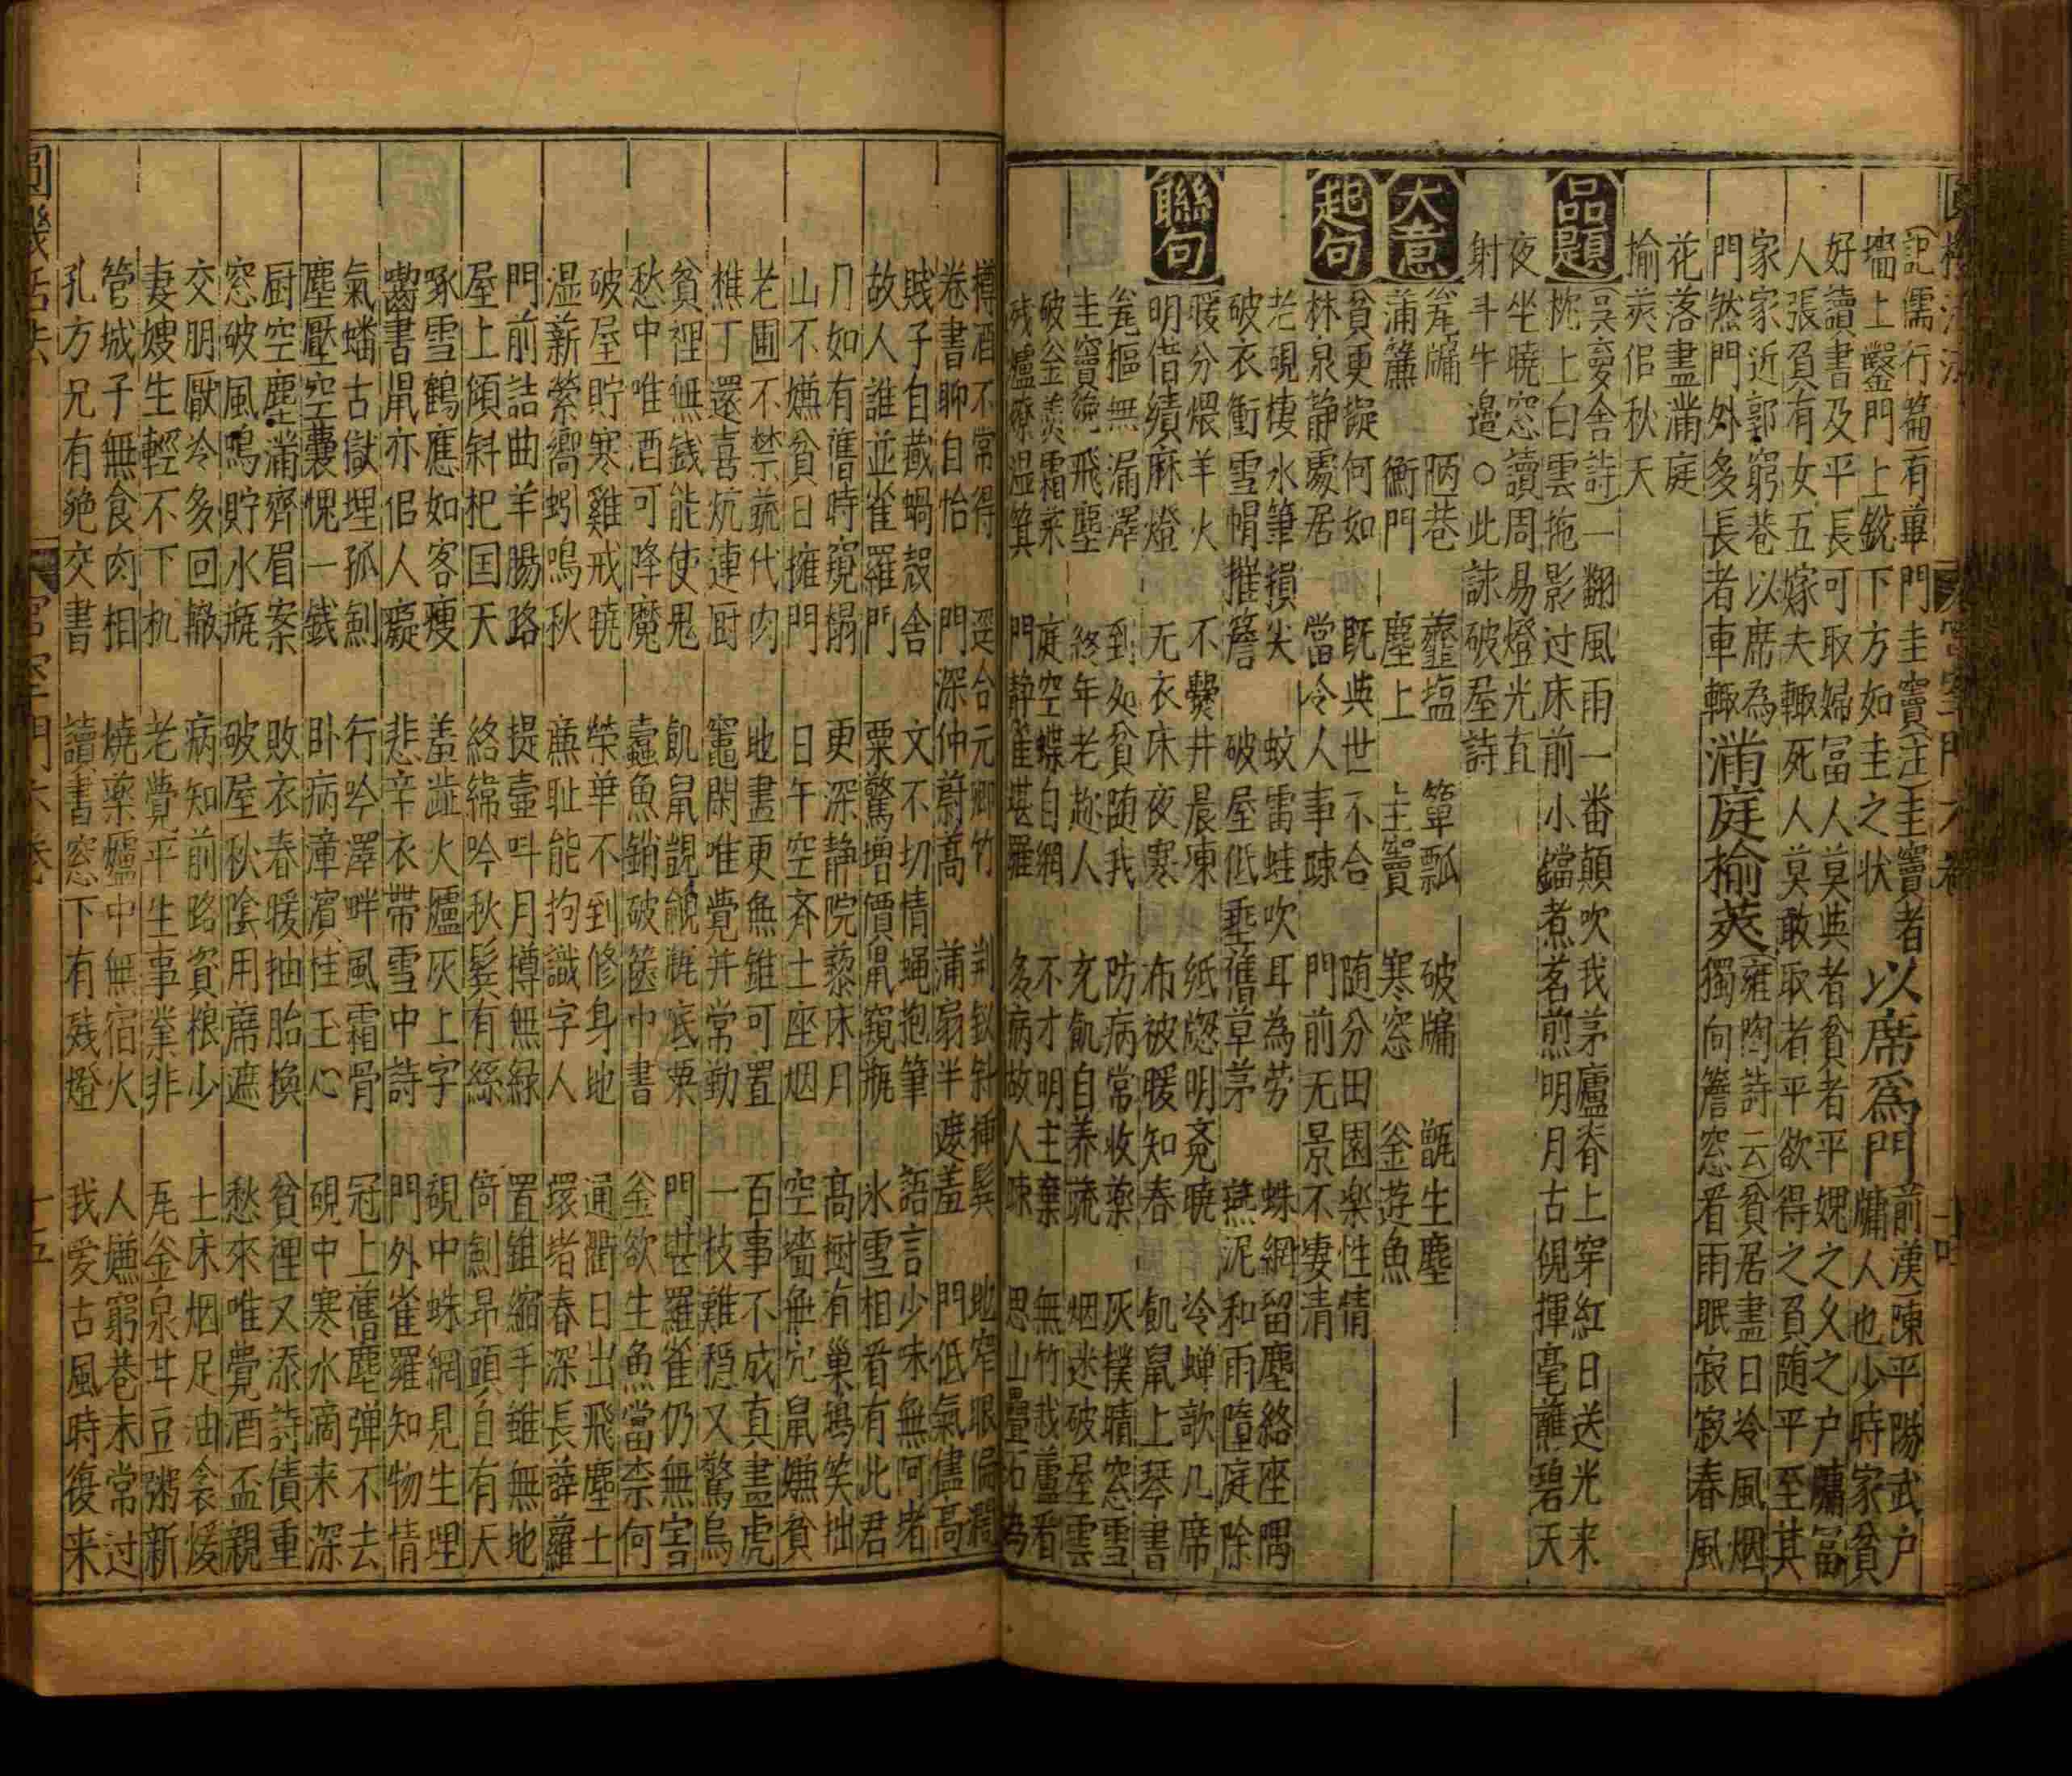 圓機活法 宮室門六卷 十四
(記儒行篇)有蓽門圭竇(注)圭竇者
墻上鑿門上銳下方如圭之状
以席爲門
(前漢)陳平陽武户
牖人也少時家貧
好讀書及平長可取婦冨人莫與者貧者平媿之久之户牖冨
人張負有女五嫁夫輒死人莫敢取者平欲得之負随平至其
家家近郭窮巷以席為
門然門外多長者車輙
滿庭榆莢
(雍陶詩云)貧居盡日冷風烟
獨向簷窓看雨眠寂寂春風
花落盡滿庭
榆莢佀秋天
品題
(吳舍詩)一翻風雨一番顛吹我茅廬脊上穿紅日送光来
枕上白雲拖影过床前小鐺煮茗煎明月古硯揮毫蘸碧天
夜坐曉窓讀周易燈光直
射斗牛邉○此詠破屋詩
大意
瓮牖 陋巷 虀塩 簞瓢 破牖 甑生塵
蒲簾 衡門 塵上 圭竇 寒窓 釜遊魚
起句
貧更何如 既與世不合 随分田園楽性情
林泉静處居 當冷人事疎 門前无景不凄清
聯句
老硯棲水筆損尖 蚊雷蛙吹耳為劳 蛛網留塵絡座隅
破衣衝雪帽摧簷 破屋低埀舊草茅 燕泥和雨墮庭除
暖分煨羊火 不爨井晨凍 紙窓明竞曉 冷蝉歌几席
明借績麻燈 无衣床夜寒 布被暖知春 飢鼠上琴書
瓮樞無漏澤 到处貧随我 防病常收藥 灰撲晴窓雪
圭竇絶飛塵 終年老趂人 充飢自养蔬 烟迷破屋雲
破釜羡霜菜 庭空蝶自網 不才明主棄 無竹栽蘆看
残爐燎湿箕 門静雀堪羅 多病故人疎 思山疊石為
樽酒不常得 逕合元卿竹 荆釵斜挿髪 地窄眠偏濶
卷書聊自怡 門深仲蔚蒿 蒲扇半遮羞 門低氣儘高
賎子自藏蝸殻舎 文不切情蝿抱筆 語言少味無阿堵
故人誰並雀羅門 粟驚增價鼠窺瓶 氷雪相看有此君
几如有舊時窺榻 更深静院藜床月 髙樹有巢鳩笑拙
山不嫌貧日擁門 日午空斉土座烟 空墻無穴鼠嫌貧
老圃不禁蔬代肉 地盡更無錐可置 百事不成真畫虎
樵丁還喜炕連厨 竈閑唯覺井常勤 一枝難穏又驚烏
貧裡無錢能使鬼 飢鼠覬覦瓶底粟 門堪羅雀仍無害
愁中唯酒可降魔 蠹魚銷破篋中書 釜欲生魚當柰何
破屋貯寒雞戒曉 榮華不到修身地 通衢日出飛塵土
湿薪縈嚮蚓鳴秋 亷耻能拘識字人 環堵春深長薜蘿
門前詰曲羊腸路 提壷叫月樽無緑 置錐縮手錐無地
屋上傾斜杞国天 絡緯吟秋髪有絲 倚劍昻頭自有天
豕雪鶴應如客瘦 羞澁火爐灰上字 硯中蛛網見生理
囓書鼠亦佀人癡 悲辛衣帶雪中詩 門外雀羅知物情
氣蟠古獄埋孤劍 行吟澤畔風霜骨 冠上舊塵弹不去
塵壓空囊愧一錢 卧病漳濱桂玉心 硯中寒水滴来深
厨空塵滿齊眉案 敗衣春暖抽胎換 貧裡又添詩債重
窓破風鳴貯水瓶 破屋秋陰用蓆遮 愁來唯覺酒盃親
交朋厭冷多回轍 病知前路資粮少 土床烟足油衾煖
妻嫂生輕不下机 老覺平生事業非 瓦釡泉甘豆粥新
管城子無食肉相 燒藥爐中無宿火 人嫌窮巷未常过
孔方兄有絶交書 讀書窓下有残燈 我愛古風時復来
圓機活法 宮室門六卷 十五